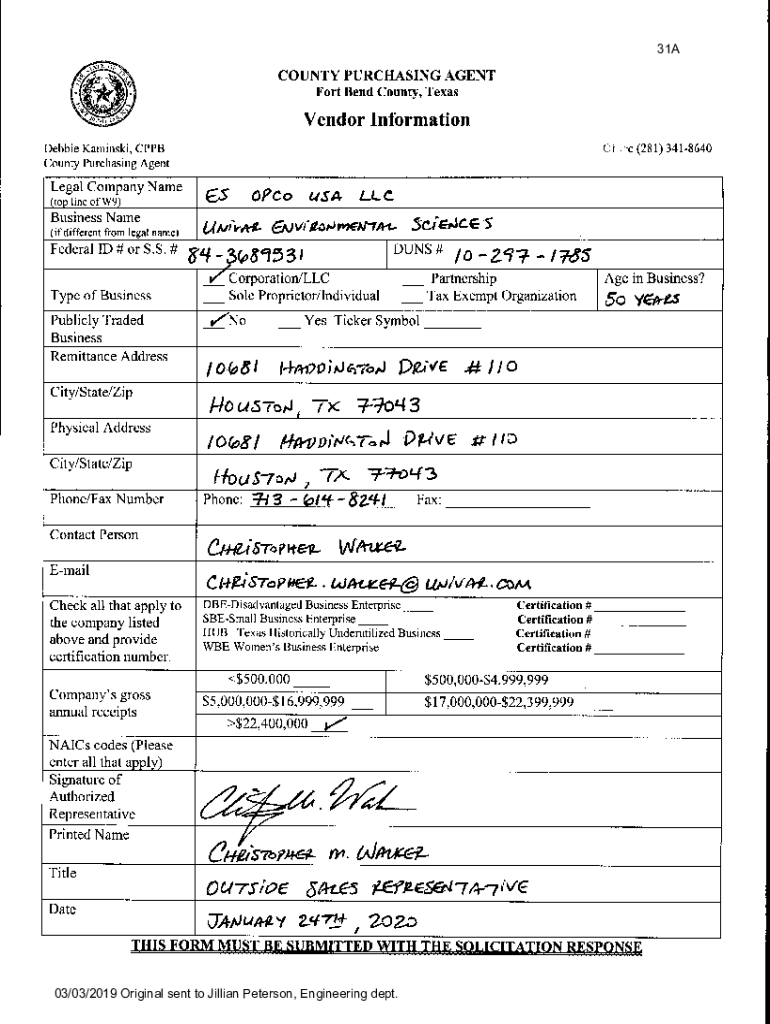 31A
COUNTY PURCHASING AGENT
Fort Bend County, Texas
Vendor Information
Debbie Kaminski, CPPB
County Purchasing Agent
(281) 341-8640
Legal Company Name
(top line of W9)
ES OPCO USA LLC
Business Name
(if different from legal name)
UNIVAR ENVIRONMENTAL SCIENCES
Federal ID # or S.S. # 84-3689531 DUNS # 10-297-1785
Type of Business
✓ Corporation/LLC ___ Partnership
___ Sole Proprietor/Individual ___ Tax Exempt Organization
Age in Business?
50 YEARS
Publicly Traded
Business
✓ No ___ Yes Ticker Symbol ________
Remittance Address
10681 HADDINGTON DRIVE #110
City/State/Zip
HOUSTON, TX 77043
Physical Address
10681 HADDINGTON DRIVE #110
City/State/Zip
HOUSTON, TX 77043
Phone/Fax Number Phone: 713-614-8241 Fax: ____________
Contact Person
CHRISTOPHER WALKER
E-mail
CHRISTOPHER.WALKER@UNIVAR.COM
Check all that apply to
the company listed
above and provide
certification number.
DBE-Disadvantaged Business Enterprise ____ Certification # ____________
SBE-Small Business Enterprise ____ Certification # ____________
HUB Texas Historically Underutilized Business ____ Certification #
WBE Women's Business Enterprise Certification # ____________
Company's gross
annual receipts
<$500,000 ____ $500,000-$4,999,999
$5,000,000-$16,999,999 ___ $17,000,000-$22,399,999
>$22,400,000 ✓
NAICs codes (Please
enter all that apply)
Signature of
Authorized
Representative
Printed Name
CHRISTOPHER M. WALKER
Title
OUTSIDE SALES REPRESENTATIVE
Date
JANUARY 24TH, 2020
THIS FORM MUST BE SUBMITTED WITH THE SOLICITATION RESPONSE
03/03/2019 Original sent to Jillian Peterson, Engineering dept.